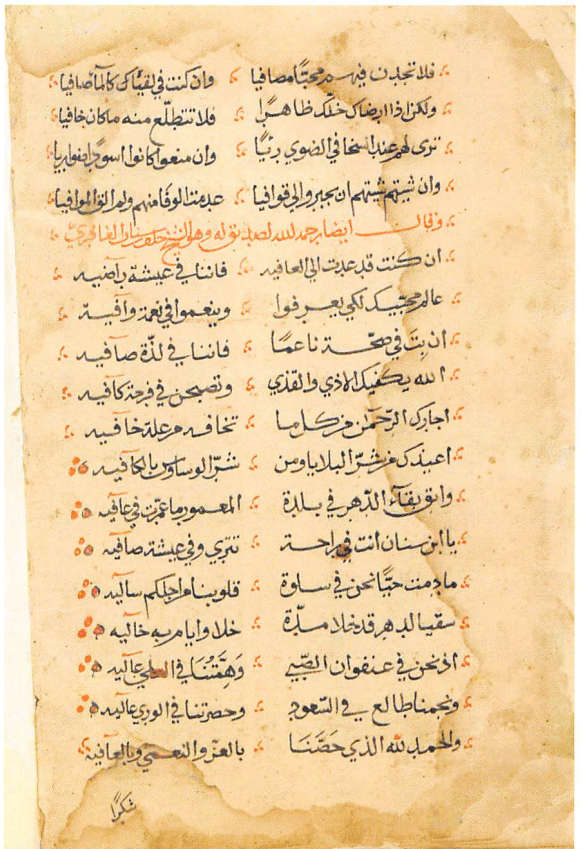 فلا تجدن فيهم محبًّا مصافيا وان كنت في لقياك كالماء صافيا
ولكن اذا ارضاك خلّك ظاهرًا فلا تتطلّع منه ما كان خافيا
ترى لهم عند السخا في الضوي وان منعوا كانوا اسودًا ضواريا
وان شيتهم شيتهم ان يجيروا لي قوافيا عدمت الوفا منهم ولم الق الموافيا
وقال ايضا رحمه الله لصديق له وهو الشيخ خلف بن سنان الغافري
ان كنت قد عدت الي العافيه فاننا في عيشة راضيه
عالم محبّيك لكي يعرفوا وينعموا في نعمة وافية
ان بتَ في صحّة ناعمًا فاننا في لذّة صافيه
الله يكفيك الاذي والقذي وتصبحن في فرحة كافيه
اجارك الرحمٰن من كل ما تخافه من علة خافيه
اعيذك من شرّ البلايا ومن شرّ الوساوس بالكافيه
وابق بقآء الدهر في بلدة المعمور ما عمّرت في عافيه
يا ابن سنان انت في راحة تتري وفي عيشة صافيه
ما دمت حيًّا نحن في سلوة قلوبنا من اجلكم ساليه
سقيا لدهر قد خلا مدّة خلا وايام به خاليه
اذ نحن في عنفوان الصّبي وَهِمَّتُنَا في العلي عاليه
ونجمنا طالع في السّعود وحضرتنا في الوري عاليه
والحمد لله الذي خَصَّنَا بالعز والنعمي وبالعافيه
شكرًا